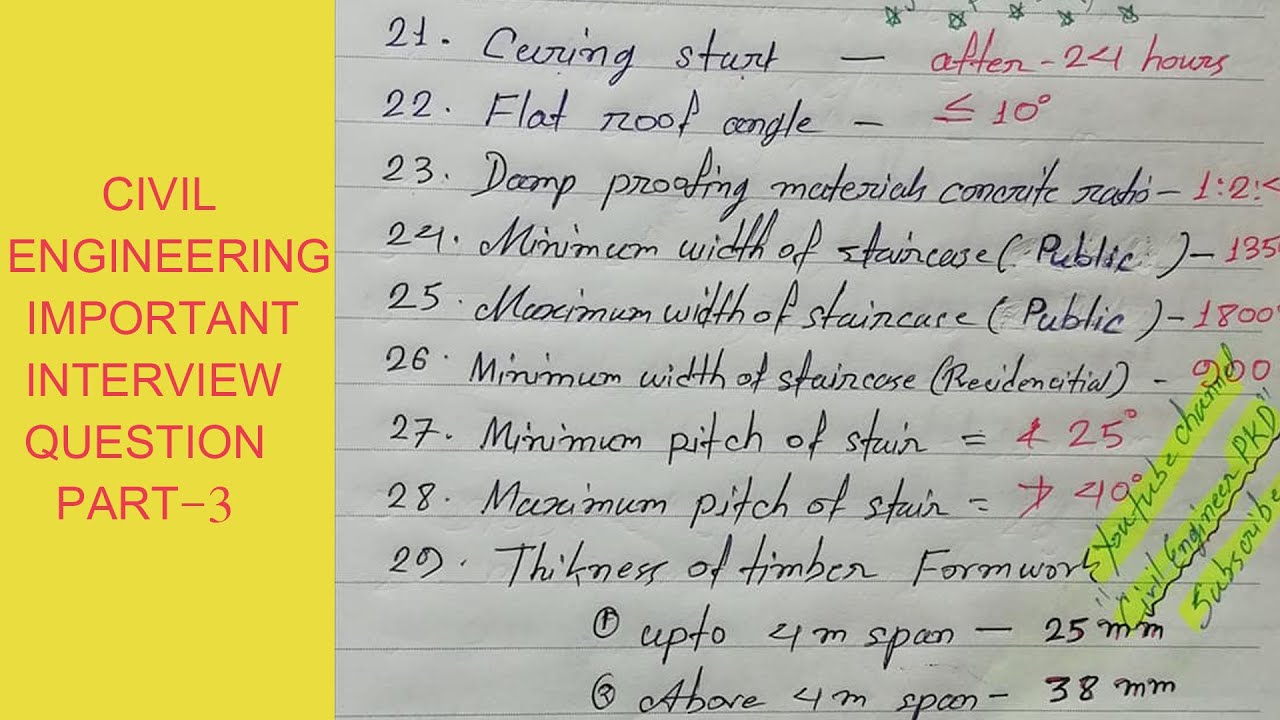 CIVIL
ENGINEERING
IMPORTANT
INTERVIEW
QUESTION
PART-3
21. Curing start — after - 24 hours
22. Flat roof angle — ≤ 10°
23. Damp proofing materials concrite ratio - 1:2:
24. Minimum width of staircase (Public) - 135
25. Maximum width of staircase (Public) - 1800
26. Minimum width of staircase (Recidencitial) - 900
27. Minimum pitch of stair = ≮ 25°
28. Maximum pitch of stair = ≯ 40°
29. Thikness of timber Formwork
① upto 4m span — 25 mm
② Above 4m span - 38 mm
"Youtube channel
Civil Engineer PKD"
Subscribe